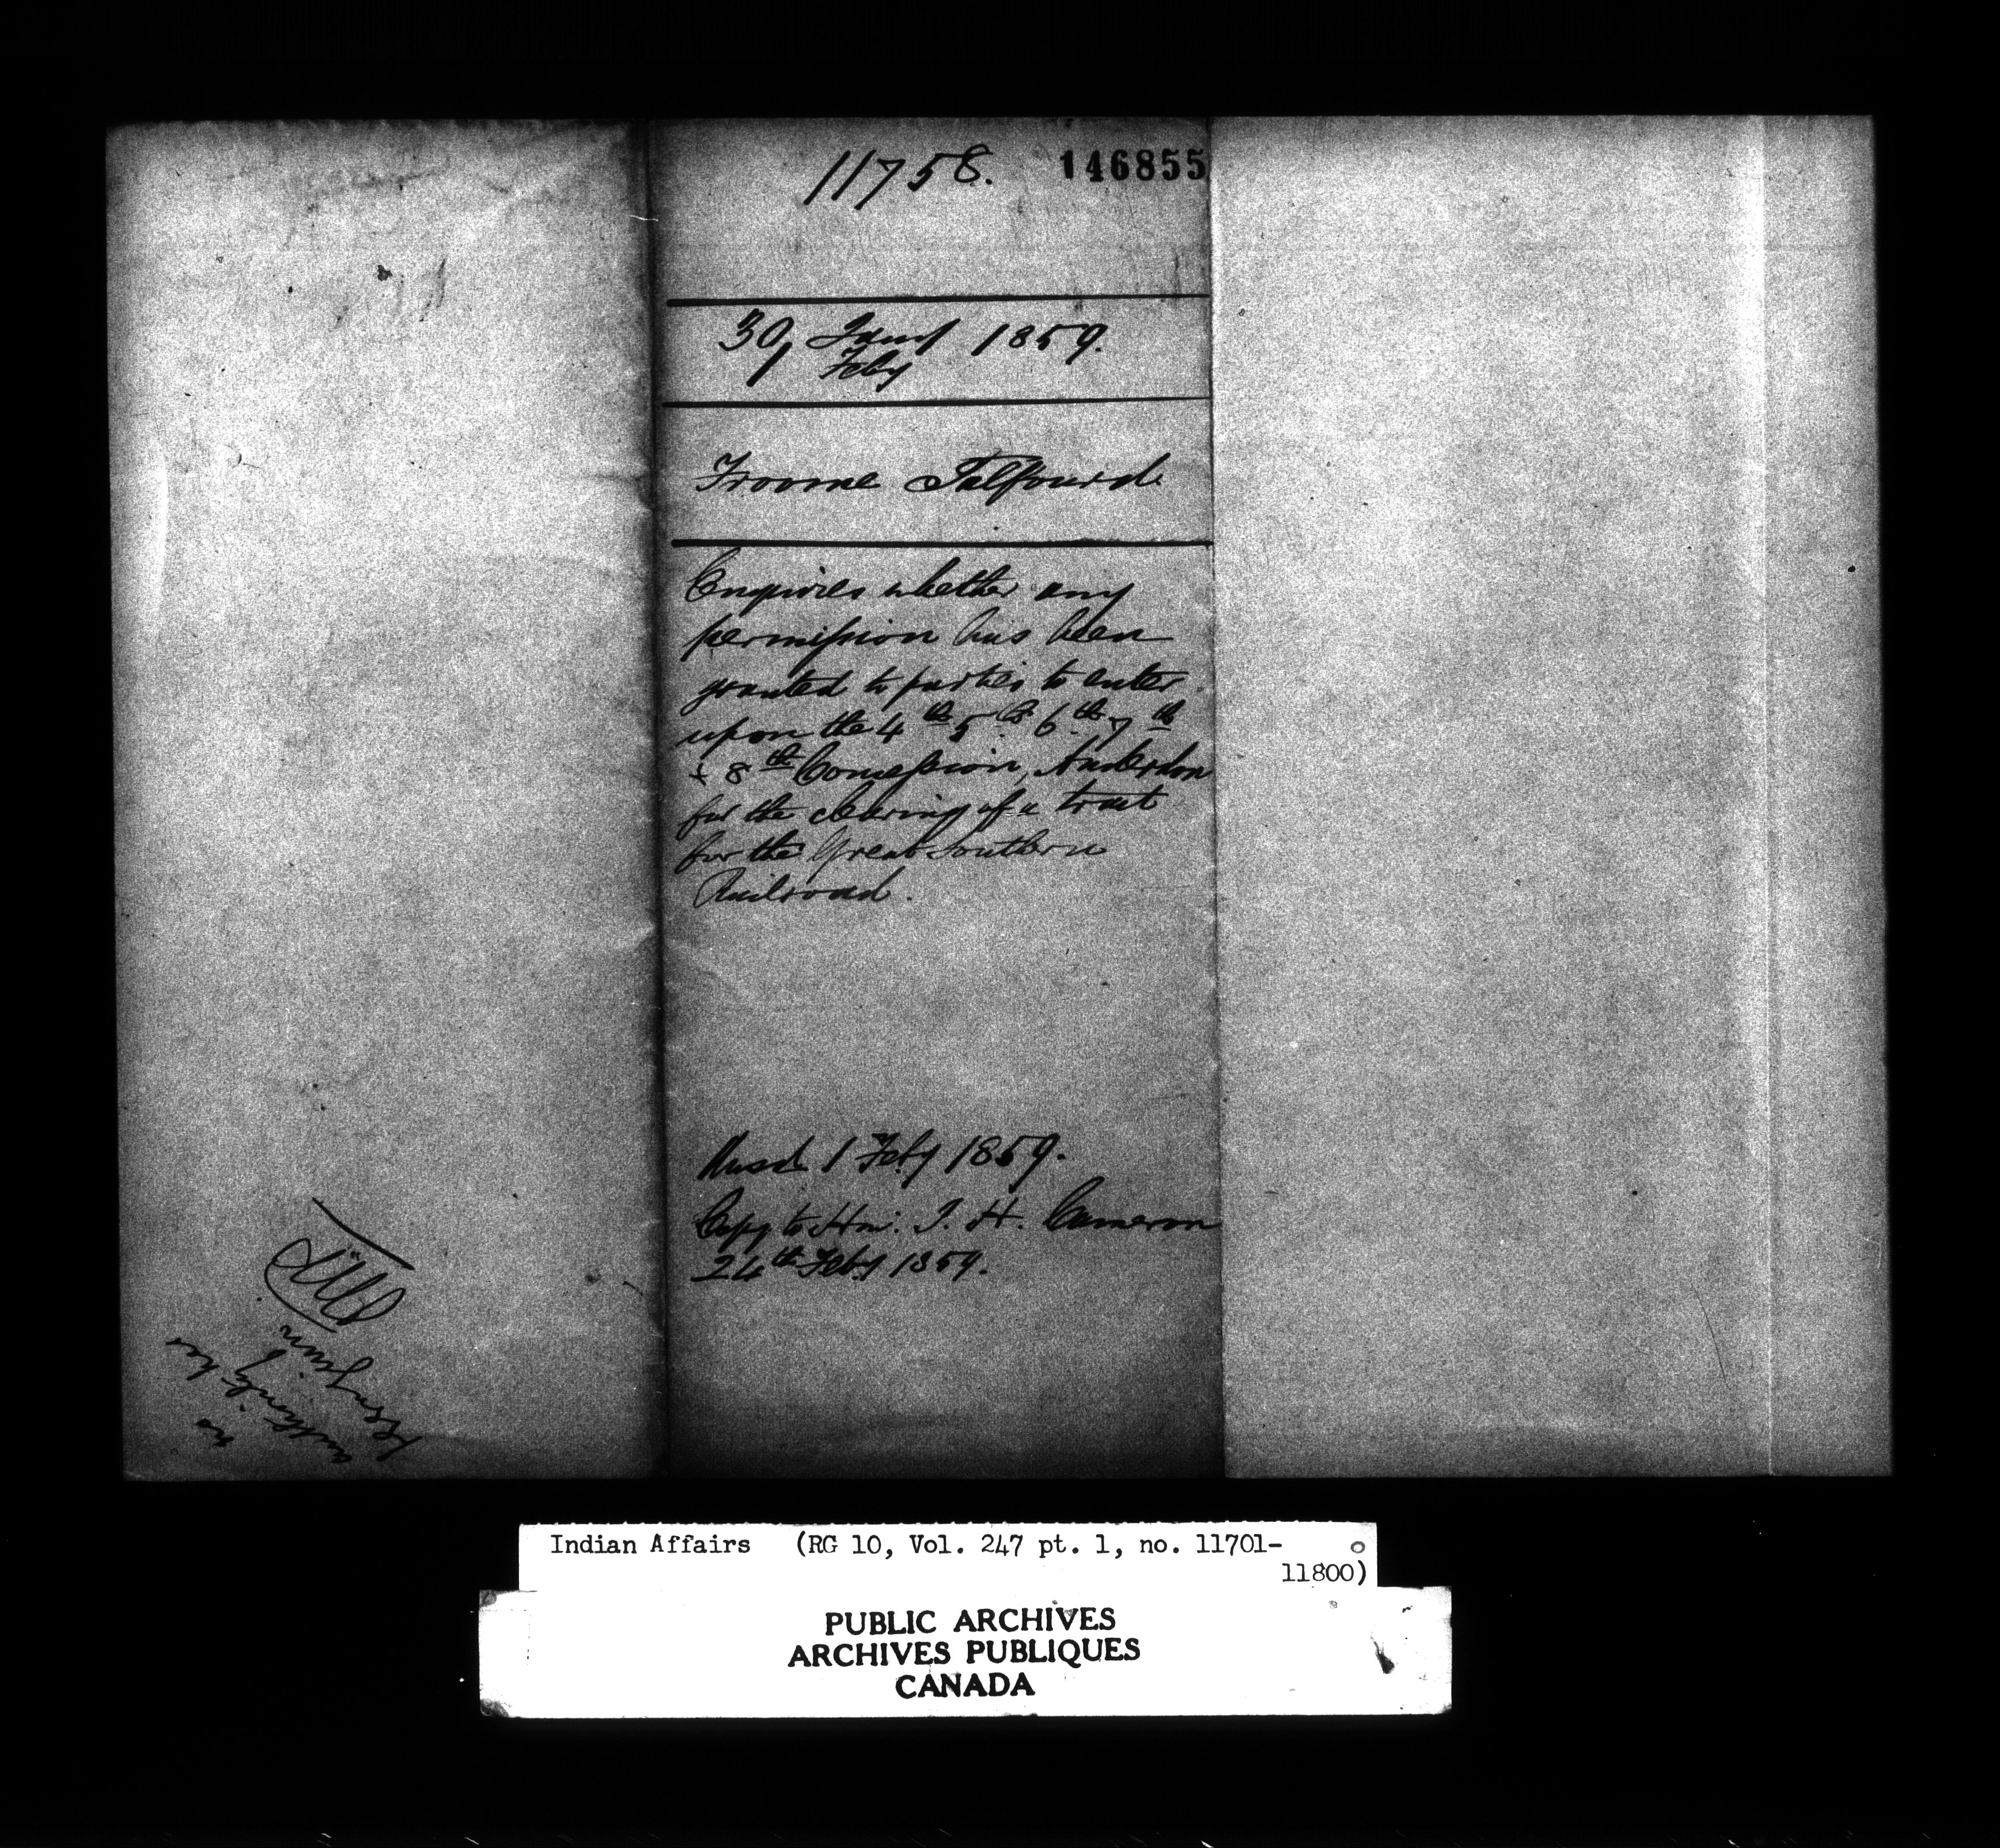 11758. 146855
30 Jany 1859.
1 Feby
Froome Talfourd
Enquires whether any
permission has been
granted to parties to enter
upon the 4th 5th 6th 7th
& 8th Concession, Anderdon
for the clearing of a tract
for the Great Southern
Railroad.
Ansd 1 Feby 1859.
Copy to Hon: J. H. Cameron
24th Feby 1859.
no
authority has
been given
Indian Affairs (RG 10, Vol. 247 pt. 1, no. 11701-
11800)
PUBLIC ARCHIVES
ARCHIVES PUBLIQUES
CANADA